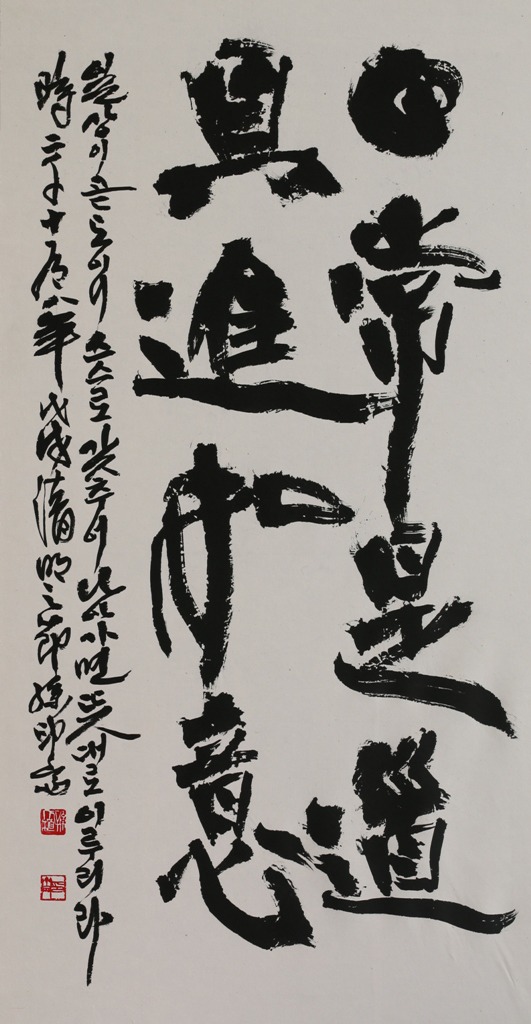 日常是道
具進如意
일상이 곧 도이니 스스로 갖추어 나아가면 뜻대로 이루리라
時二千十有八年 戊戌淸明之節